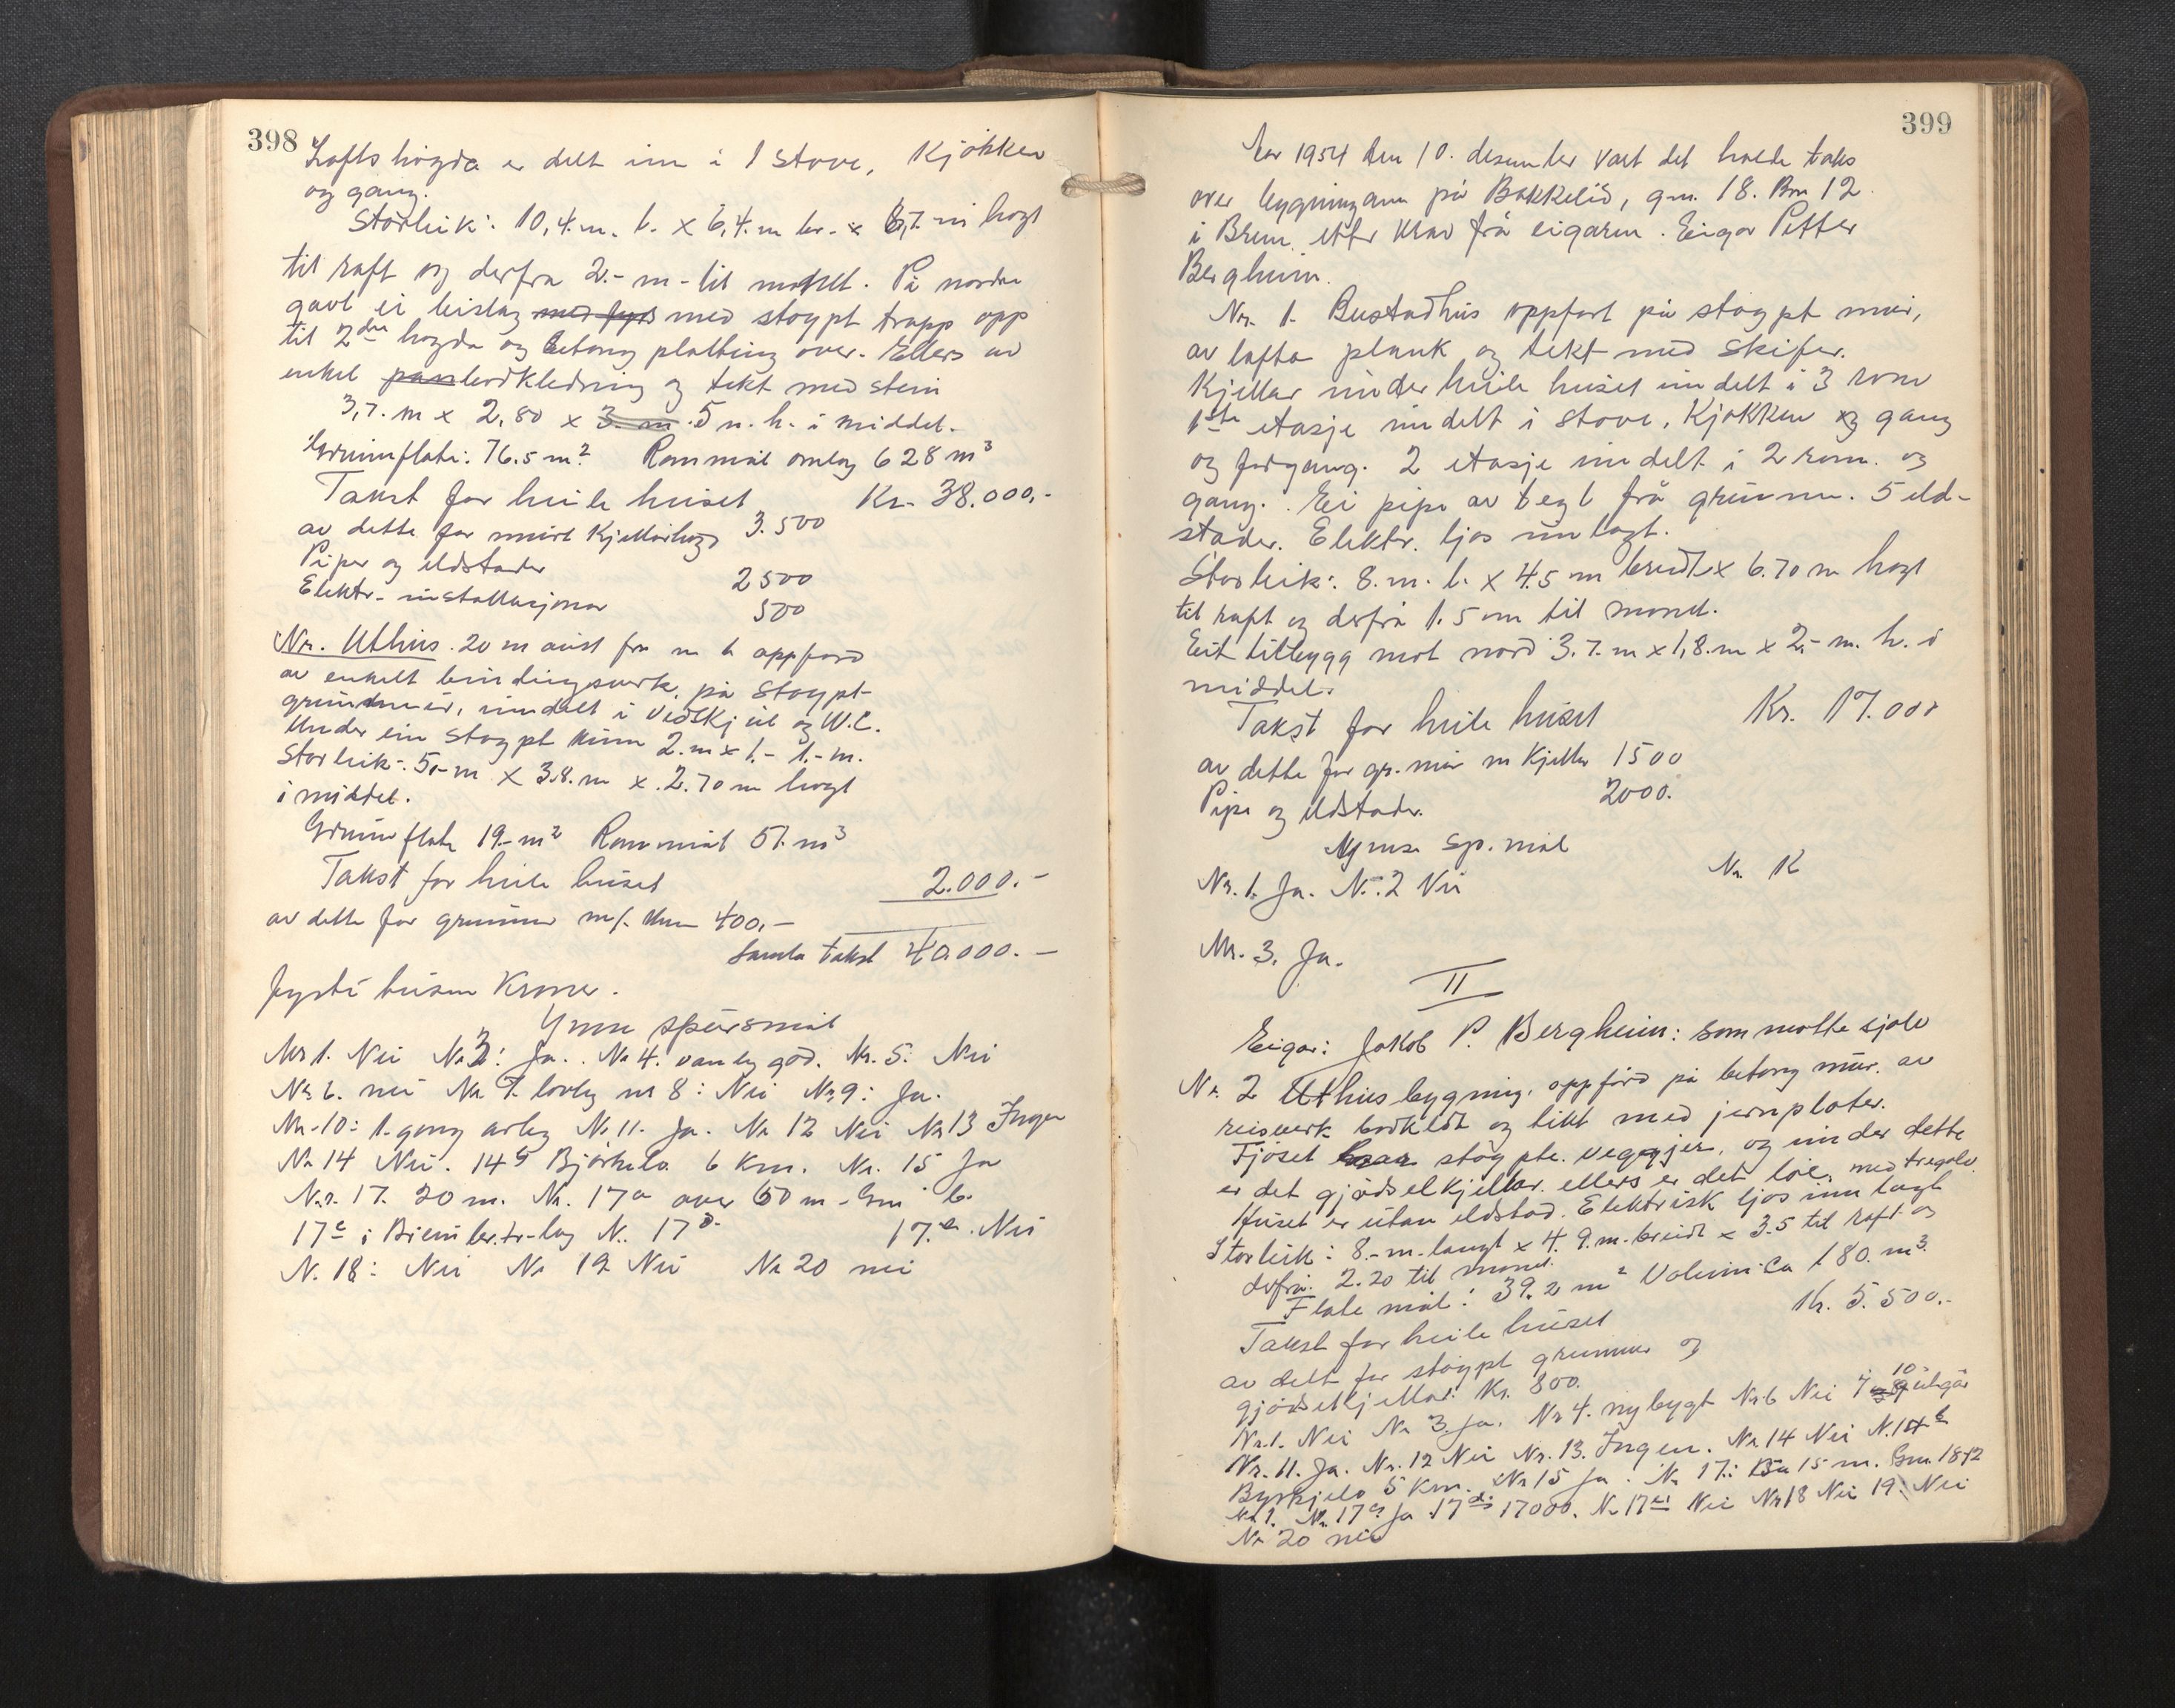 398
Loftshøgda er delt inn i 1 stove, Kjøkken
og gang.
Storleik: 10,4. m. l. x 6,4. m br. x 6,7. m høgt
til raft og derfra 2.- m - til mønet. På nordre
gavl ei bislag med fyrs med støypt trapp opp
til 2dre høgda og betong platting over. Ellers av
enkel pan bordkledning og tekt med stein
3,7. m x 2,80 x 3. m. 5 m. h. i middel.
Grunnflate: 76.5 m². Rommål omlag 628 m³
Takst for heile huset Kr. 38.000,-
av dette for murt Kjellarhøgd 3.500
Piper og eldstader 2500
Elektr. installasjonar 500
Nr. Uthus. 20 m aust fra nr 1 oppførd
av enkelt bindingsverk, på støypt
grunnmur, inndelt i vedskjul og W.C.
Under ein støypt kum 2. m x 1.- 1.- m.
Storleik: 5,- m x 3.8. m x 2.70 m høgt
i middel.
Grunnflate 19.- m² Rommål 51. m³
Takst for heile huset 2.000.-
av dette for grunnmur m/. kum 400,-
Samla takst 40.000.-
førti tusen Kroner.
Ymse spørsmål
Nr 1. Nei Nr 3: Ja. Nr 4. vanleg god. Nr. 5: Nei
Nr 6. nei Nr 7. lovleg nr 8: Nei Nr 9: Ja.
Nr. 10: 1. gong årleg Nr 11. Ja. Nr 12 Nei Nr 13 Ingen
Nr 14 Nei. 14b Bjørkelo 6 Km. Nr. 15 Ja
Nr. 17. 20 m. Nr. 17a over 60 m - Gni b.
17c i Breim br.tr-lag N. 17d. 17.e. Nei
N. 18: Nei Nr 19 Nei Nr 20 nei
399
År 1954 den 10. desember vart det halde taks
over bygningane på Bakkelid, gnr. 18. Bnr 12.
i Breim, etter krav frå eigaren. Eigar Petter
Bergheim.
Nr. 1. Bustadhus oppført på støypt mur,
av lafta plank og tekt med skifer.
Kjellar under heile huset inndelt i 3 rom
1ste etasje inndelt i stove, Kjøkken og gang
og forgang. 2 etasje inndelt i 2 rom. og
gang. Ei pipe av tegl frå grunnen. 5 eld-
stader. Elektr. ljos innlagt.
Storleik: 8. m. l. x 4.5 m breidt x 6.70 m høgt
til raft og derfrå 1.5 m til mønet.
Eit tilbygg mot nord 3.7. m x 1,8. m x 2,- m. h. i
middel.
Takst for heile huset Kr. 17.000
av dette for gr. mur m Kjeller 1500
Pipe og eldstader. 2000.
Ymse sp. mål
Nr. 1. Ja. N. 2 Nei Nr. K
Nr. 3. Ja.
II
Eigar: Jakob P. Bergheim: som møtte sjølv
Nr. 2 Uthusbygning, oppførd på betong mur. av
reisverk bordkledt og tekt med jernplater.
Fjøset har støypte veggjer, og under dette
er det gjødselkjellar. ellers er det løe. med tregolv.
Huset er utan eldstad. Elektrisk ljos innlagt
Storleik: 8.- m. langt x 4. 9. m. breidt x 3.5 til raft og
derfrå. 2.20 til mønet.
Flatemål: 39.2 m² Volum: Ca 180. m³.
Takst for heile huset Kr. 5.500.-
av dett for støypt grunnmur og
gjødselkjellar: Kr. 800.
Nr. 1. Nei Nr 3. Ja. Nr 4. nybygt Nr 6 Nei 7 10 utgår
Nr. 11. Ja. Nr. 12 Nei Nr. 13. Ingen. Nr. 14 Nei N. 14b
Byrkjelo 5 Km. Nr 15 Ja. Nr 17: Ba 15 m. Gnr. 18 12
Nr 1. Nr. 17c Ja 17d: 17000. Nr 17e: Nei Nr 18 Nei 19. Nei
Nr 20 nei